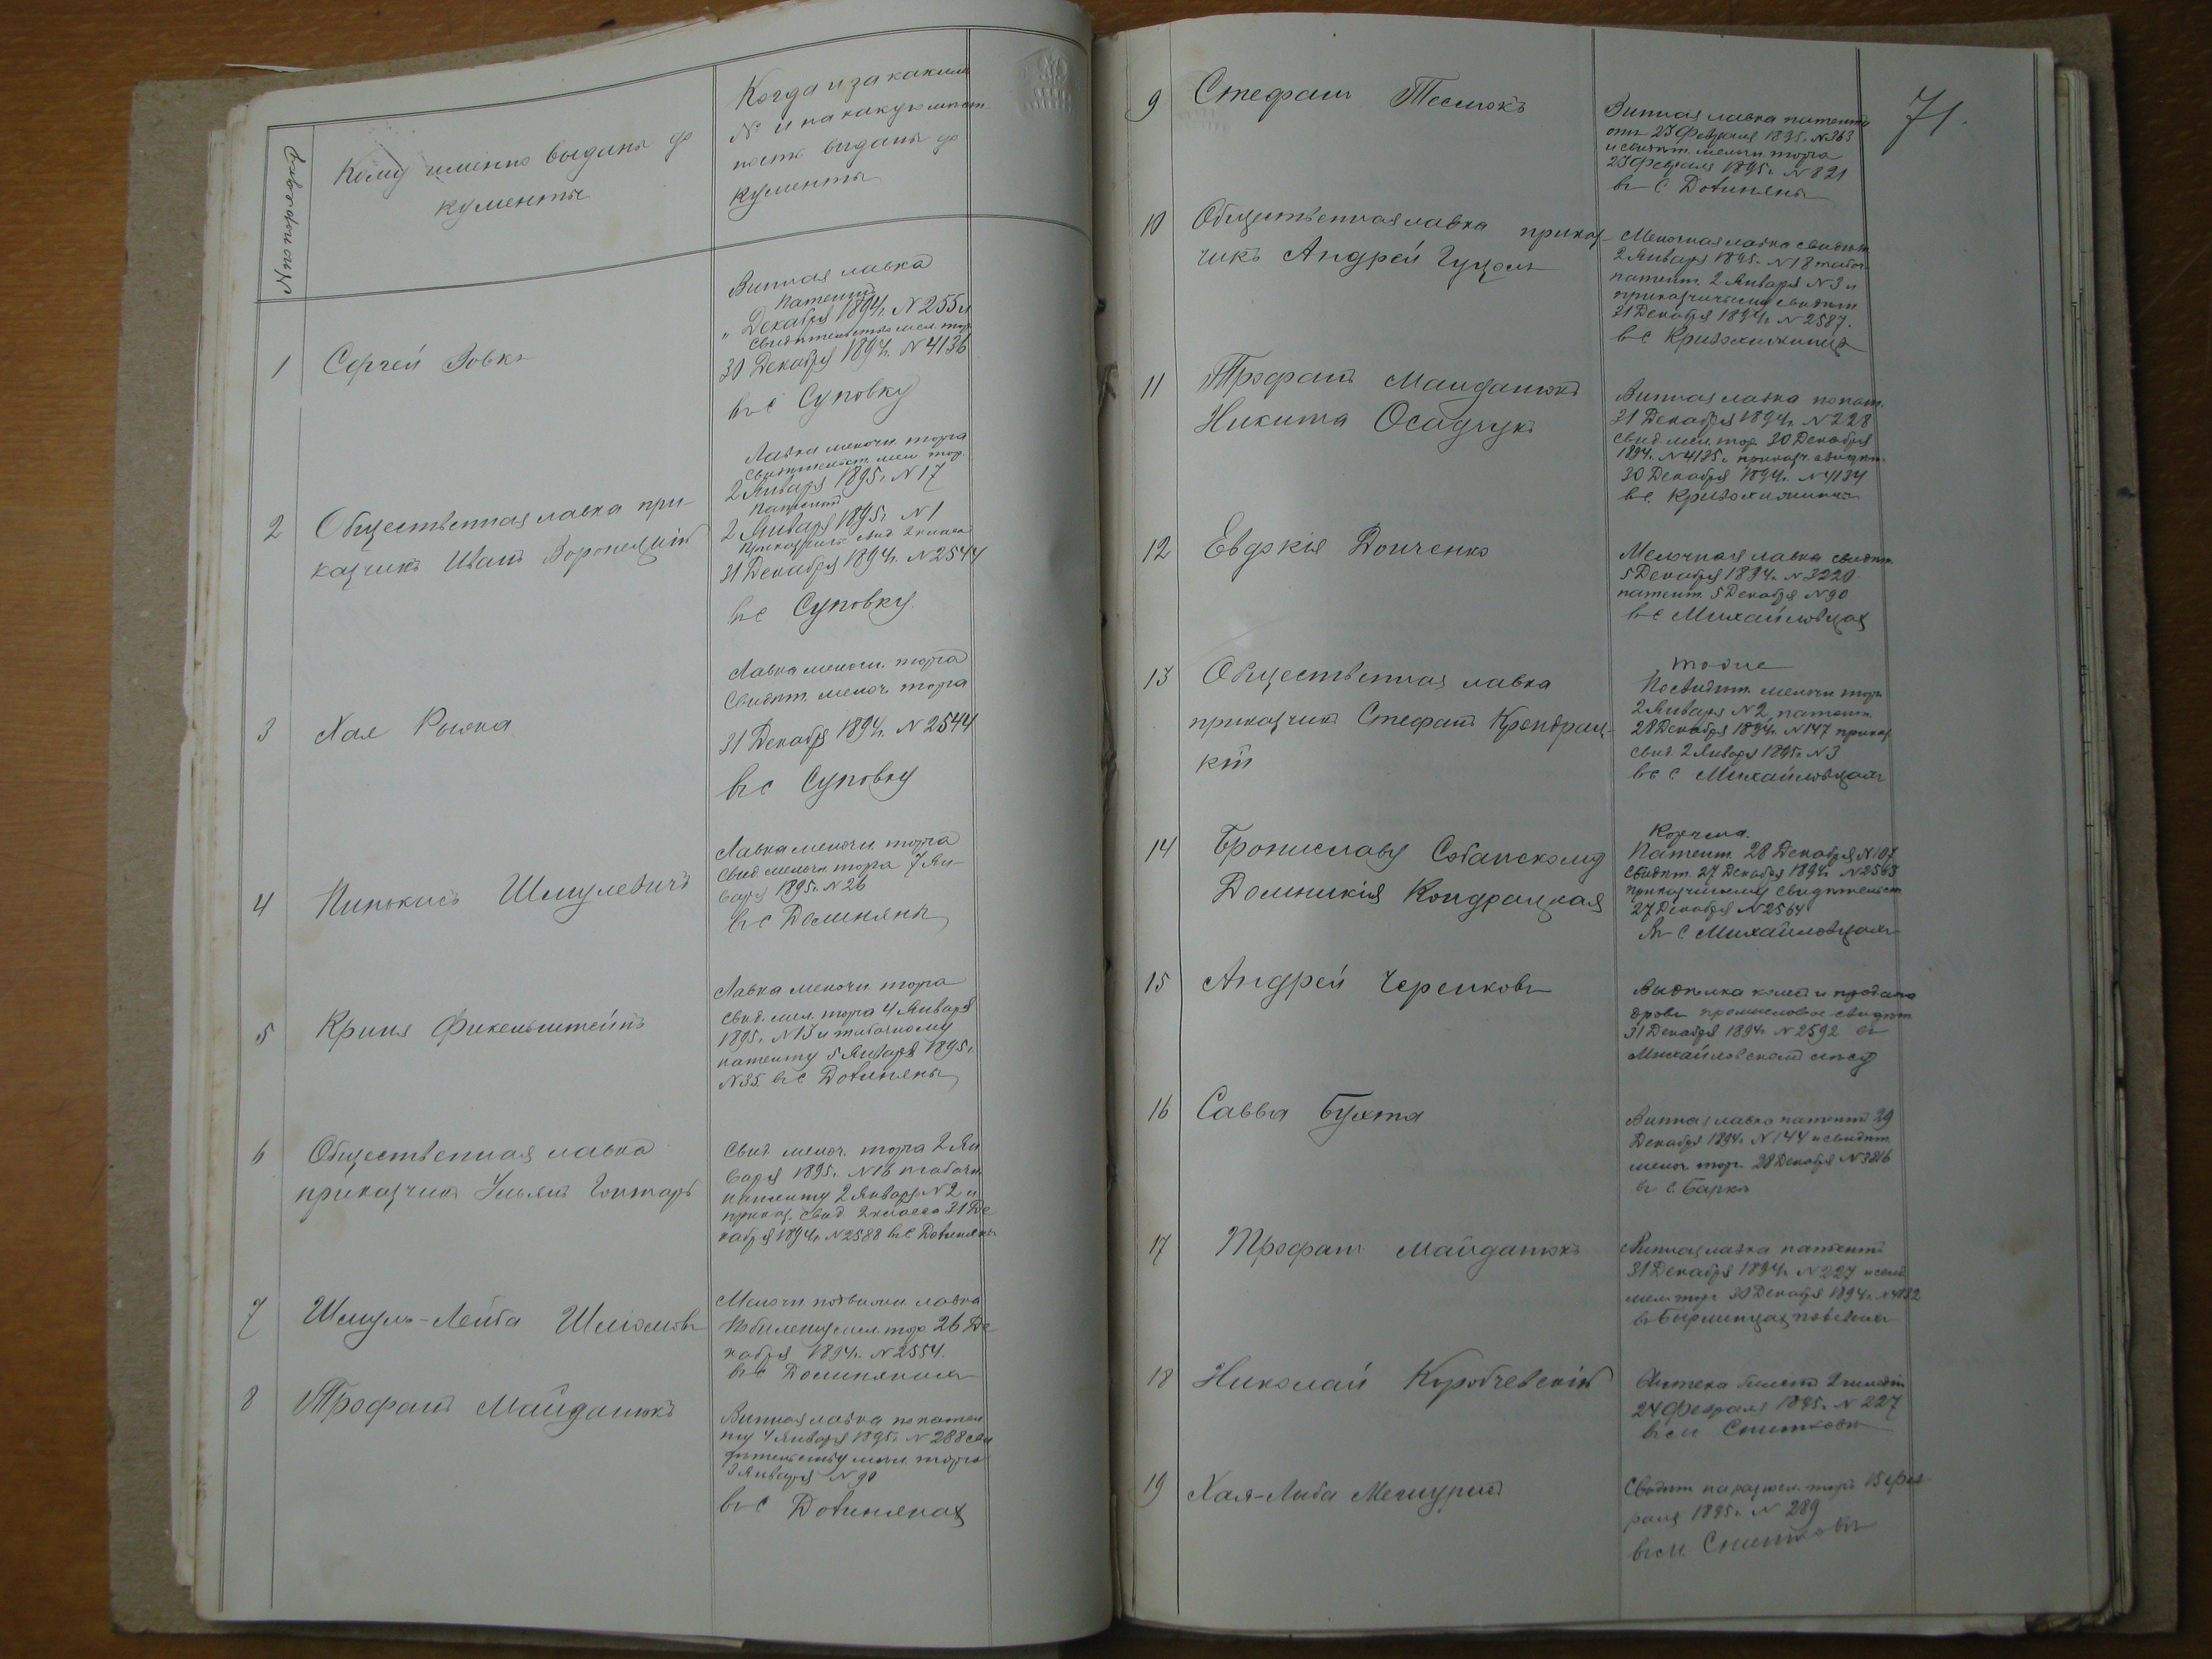 № по порядку
Кому именно выданы до
кументы
Когда и за какимъ
№ и на какую мѣст
ность выданы до
кументы
1
Сергей Вовкъ
Винная лавка
Патентъ
" Декабря 1894 г. N 255 и
Свидѣтельство мел. тор.
30 Декабря 1894 г. N 4136
въ с Суповку
2
Общественная лавка при-
кащикъ Иванъ Воронецкій
Лавка мелочн. торга
Свидѣтельст. мел. тор.
2 Января 1895 г. N 17
Патентъ
2 Января 1895 г. N 1
Прикащич. свид. 2 класса
31 Декабря 1894 г. N 2544
въ с Суповку.
3
Хая Рывка
Лавка мелочн. торга
Свидѣт. мелоч. торга
31 Декабря 1894 г. N 2544
въ с Суповку
4
Пинькисъ Шмулевичъ
Лавка мелочн. торга
Свид. мелочн. торга 7 Ян-
варя 1895 г. N 26
въ с Долиняны
5
Криня Финкельштейнъ
Лавка мелочн. торга
Свид. мел. торга 4 Января
1895 г. N 13 и табачному
патенту 5 Января 1895 г.
N 35. въ с Долиняны
6
Общественная лавка
прикащикъ Ульянъ Гонтаръ
Свид. мелоч. торга 2 Ян
варя 1895 г. N 16 табачн.
патенту 2 Января N 2 и
приказ. свид. 2 класса 31 Де
кабря 1894 г. N 2588 въ с. Долиняны
7
Шмуль-Лейба Шлiомовъ
Мелочн. лавка
По билету мел. тор. 26 Де
кабря 1894 г. N 2554.
въ с Долинянахъ
8
Трофимъ Майданюкъ
Винная лавка по патен
ту 4 Января 1895 г. N 288 сви
дѣтельству мел. торга
3 Января N 90
въ с Долинянах
9
Стефанъ Теслюкъ
Винная лавка патентъ
отъ 23 Февраля 1895 г. N 363
и свидѣт. мелочн. торга
23 Февраля 1895 г. N 821
въ с Долиняны
71.
10
Общественная лавка приказ-
чикъ Андрей Гуцолъ
Мелочная лавка свидѣт.
2 Января 1895 г. N 18 табач.
патент. 2 Января N 3 и
приказчичьему свидѣт.
31 Декабря 1894 г. N 2587.
въ с
11
Трофимъ Майданюкъ
Никита Осадчукъ
Винная лавка по пат.
31 Декабря 1894 г. N 228
свид. мел. тор. 30 Декабря
1894 г. N 4135 и приказч. свидѣт.
30 Декабря 1894 г. N 4134
въ с.
12
Евдокія Донченко
Мелочная лавка свидѣт.
5 Декабря 1894 г. N 3220
патент. 5 Декабря N 90
въ с Михайловцах
13
Общественная лавка
приказчикъ Стефанъ Крендрац-
кій
тоже
По свидѣт. мелочн. торг.
2 Января N 2, патент.
28 Декабря 1894 г. N 147 приказ.
свид. 2 Января 1895 г. N 3
въ с Михайловцахъ
14
Брониславу Собанскому
Домникія Кондрацкая
Корчма.
Патент. 28 Декабря N 107
свидѣт. 27 Декабря 1894 г. N 2563
приказчичьему свидѣтельст.
27 Декабря N 2564
въ с Михайловцахъ
15
Андрей Черенковъ
Выдѣлка и продажа
дровъ промысловое свидѣт.
31 Декабря 1894 г. N 2592 въ
Михайловскомъ лѣсу
16
Савва Бухта
Винная лавка патентъ 29
Декабря 1894 г. N 144 и свидѣт.
мелоч. торг. 28 Декабря N 3816
въ с.
17
Трофимъ Майданюкъ
Винная лавка патентъ
31 Декабря 1894 г. N 227 и свид.
мел. торг. 30 Декабря 1894 г. N 4132
18
Николай Коробчевскій
Аптека билетъ 2 гильдіи
24 Февраля 1895 г. N 227
въ м Снитковѣ
19
Хая-Либа Мечурисъ
Свидѣт. на торгъ 15 Фев
раля 1895 г. N 289
въ м. Снитковѣ